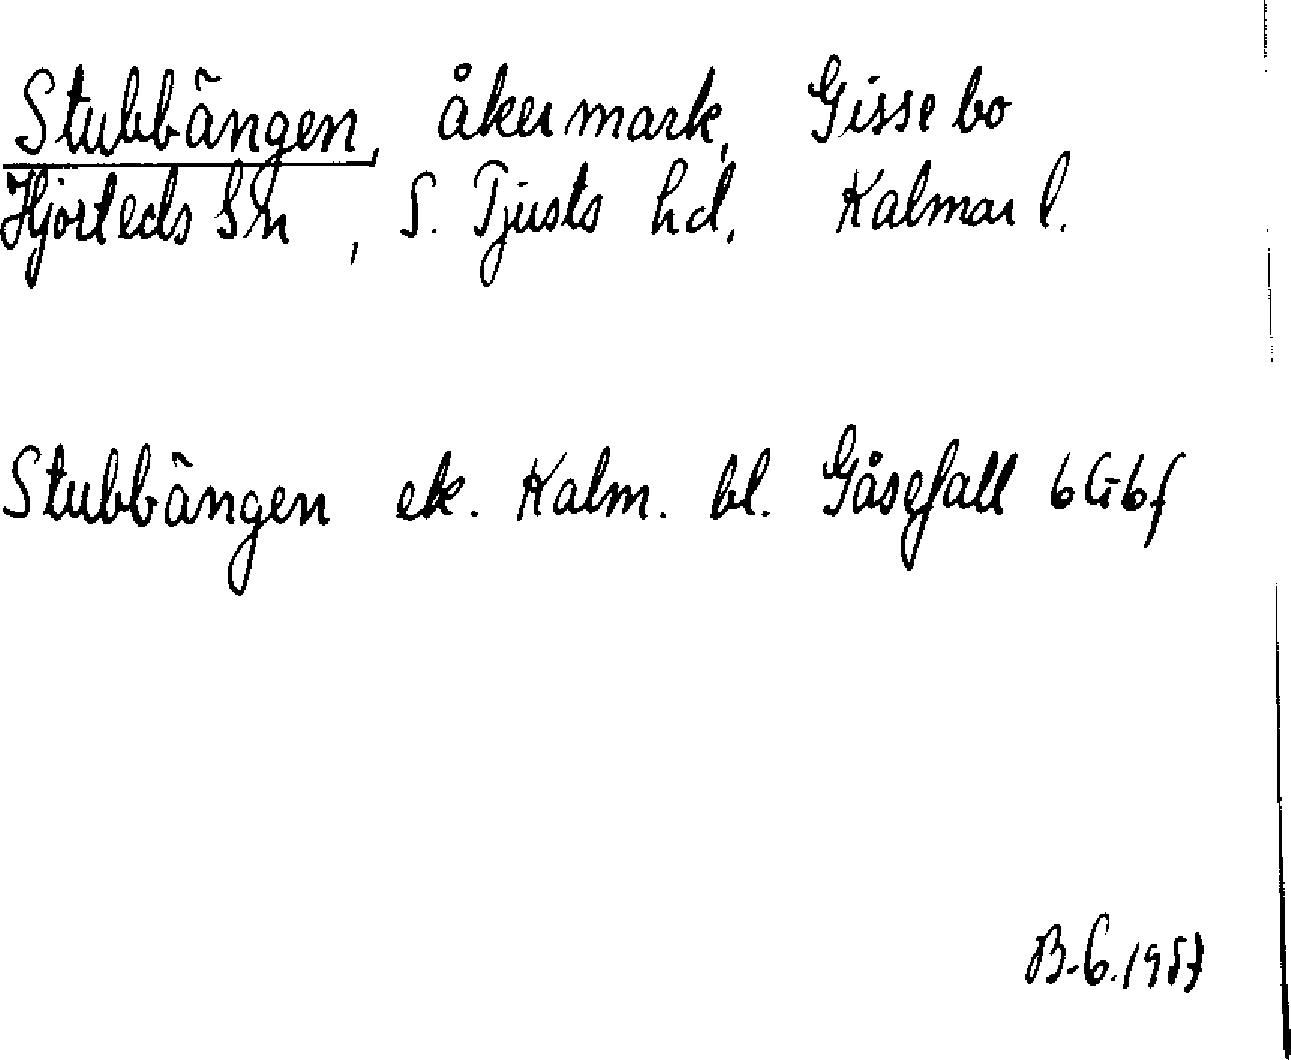 Stubbängen, åkermark, Gissebo
Hjorteds Sn, S. Tjusts hd, Kalmar l.
Stubbängen ek. Kalm. bl. Gåsefall 6G6f
B-G. 1957